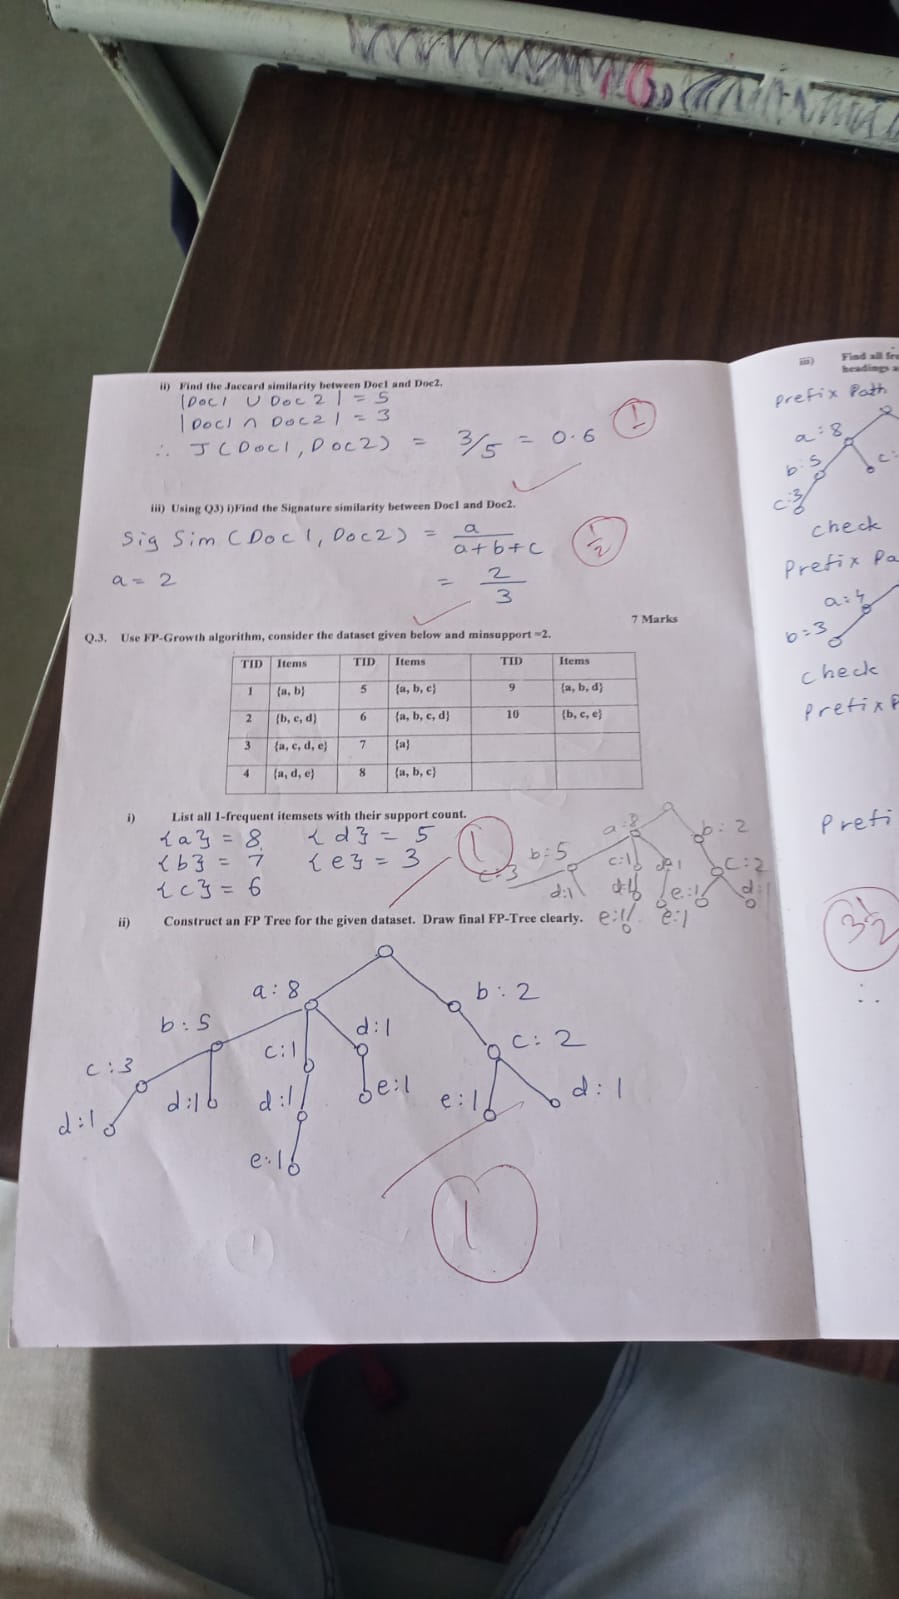 ii) Find the Jaccard similarity between Doc1 and Doc2.
|Doc1 ∪ Doc2| = 5
|Doc1 ∩ Doc2| = 3
∴ J(Doc1, Doc2) = 3/5 = 0.6
1
iii) Using Q3) i)Find the Signature similarity between Doc1 and Doc2.
Sig Sim (Doc1, Doc2) = a / a+b+c
1/2
a = 2 = 2/3
7 Marks
Q.3. Use FP-Growth algorithm, consider the dataset given below and minsupport =2.
TID Items TID Items TID Items
1 {a, b} 5 {a, b, c} 9 {a, b, d}
2 {b, c, d} 6 {a, b, c, d} 10 {b, c, e}
3 {a, c, d, e} 7 {a}
4 {a, d, e} 8 {a, b, c}
i) List all 1-frequent itemsets with their support count.
{a} = 8 {d} = 5
{b} = 7 {e} = 3
{c} = 6
1
a:8 b:2
b:5 c:1 d:1 c:2
c:3 d:1 d:1 e:1 d:1
e:1 e:1
ii) Construct an FP Tree for the given dataset. Draw final FP-Tree clearly.
a:8 b:2
b:5 d:1
c:3 c:1 c:2
d:1 d:1 d:1 e:1 e:1 d:1
e:1
1
iii) Find all
headings
Prefix Path
a:8
b:5 c:
c:3
check
Prefix
a:4
b=3
check
Prefix
3 1/2
∴